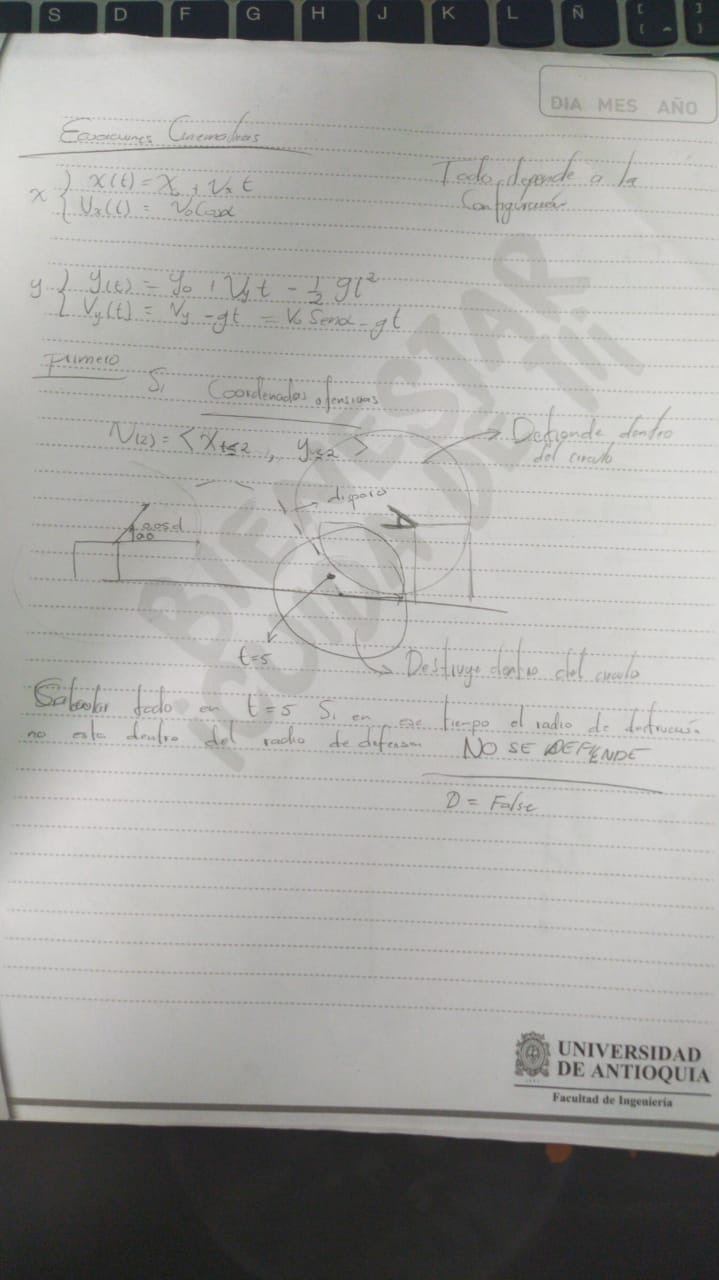 S D F G H J K L Ñ [ ]
DIA MES AÑO
Ecuaciones Cinematicas
Todo depende a la
Configuración
x { x(t) = X₀ + Vₓ t
Vx(t) = V₀ Cos α
y { y(t) = y₀ + Vy t - 1/2 gt²
Vy(t) = Vy - gt = V₀ Sen α - gt
Primero
S₁ Coordenadas ofensivas
N(2) = < X t≤2 , y ≤2 >
Defiende dentro
del circulo
disparo
D
t=5
Destruye dentro del circulo
todo en t=5 Si en ese tiempo el radio de destrucción
no esta dentro del radio de defensa NO SE DEFIENDE
D = False
BIENESTAR
¡CUIDA DE TI!
UNIVERSIDAD
DE ANTIOQUIA
Facultad de Ingeniería